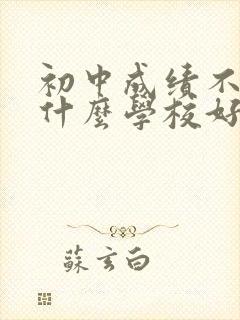 初中成绩不
什麼學校好
蘇玄白